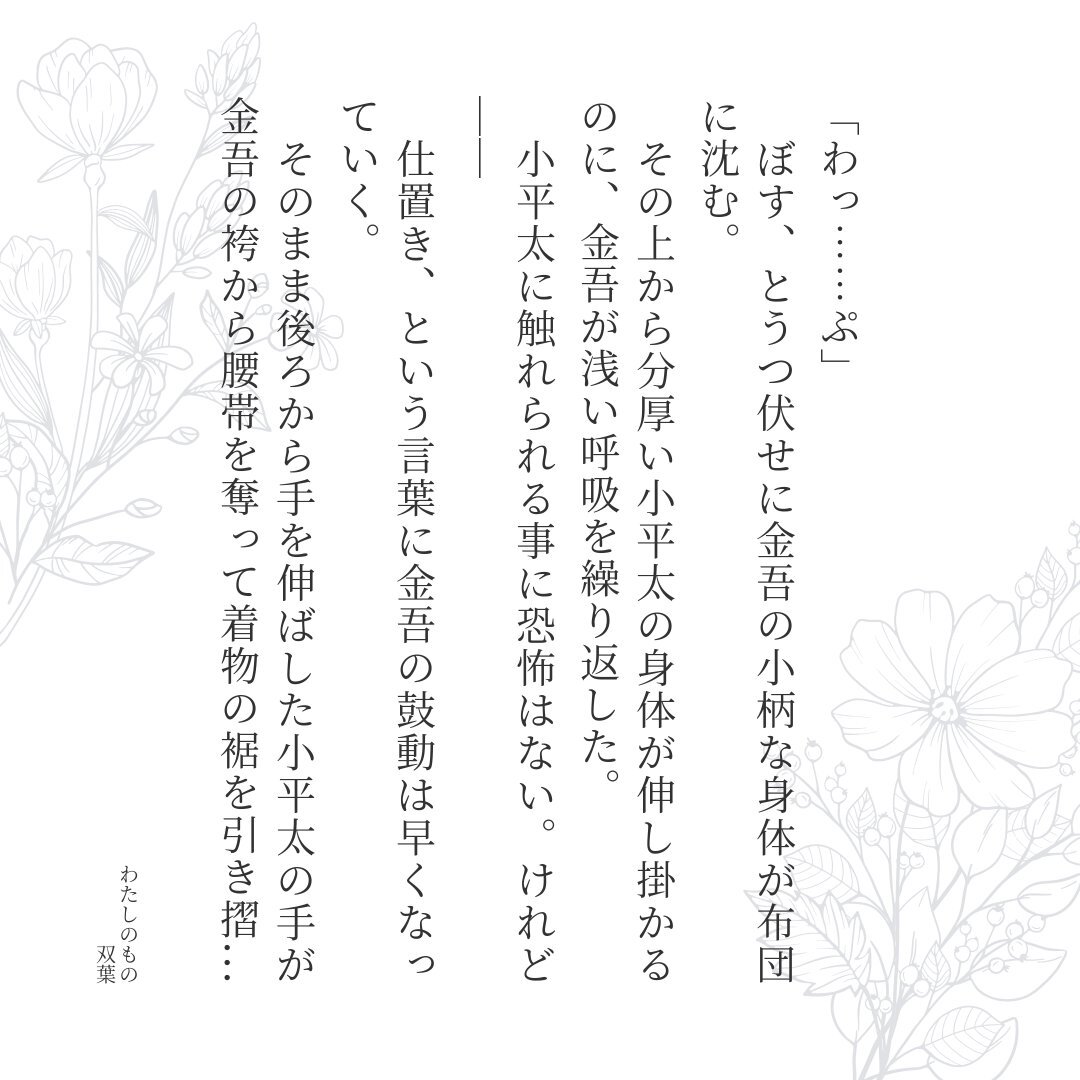 「わっ……ぷ」
ぼす、とうつ伏せに金吾の小柄な身体が布団
に沈む。
その上から分厚い小平太の身体が伸し掛かる
のに、金吾が浅い呼吸を繰り返した。
小平太に触れられる事に恐怖はない。けれど
――
仕置き、という言葉に金吾の鼓動は早くなっ
ていく。
そのまま後ろから手を伸ばした小平太の手が
金吾の袴から腰帯を奪って着物の裾を引き摺…
わたしのもの
双葉